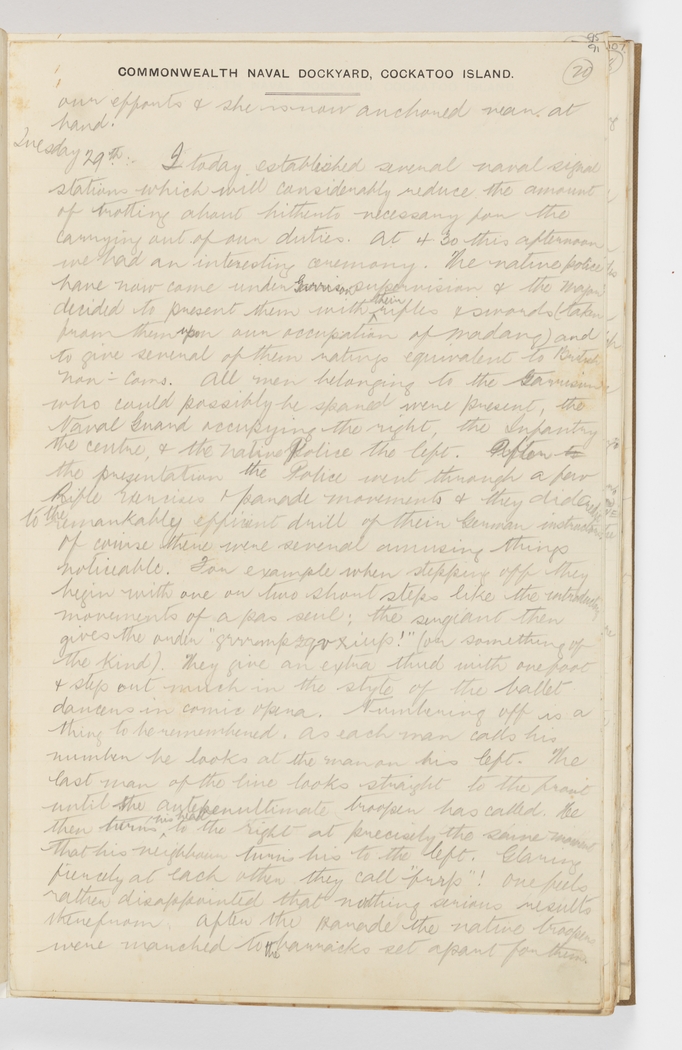 20
COMMONWEALTH NAVAL DOCKYARD, COCKATOO ISLAND.
our efforts & she is now anchored near at
hand.
Tuesday 29th:- I today established several naval signal
stations which will considerably reduce the amount
of trotting about hitherto necessary for the
carrying out of our duties. At 4 30 this afternoon
we had an interesting ceremony. The native police
have now come under Garrison supervision & the Major
decided to present them with their rifles & swords (taken
from them upon our occupation of Madang) and
to give several of them ratings equivalent to British
Non-Coms. All men belonging to the Garrison
who could possibly be spared were present, the
Naval Guard occupying the right, the Infantry
the centre, & the native Police the left. After
the presentation the Police went through a few
Rifle Exercises & parade movements & they did credit
to the remarkably efficient drill of their German instructors
of course there were several amusing things
noticeable. For example when stepping off they
begin with one or two short steps like the introductory
movements of a pas seul; the sergiant then
gives the order "grrrmpzgvxiiip!" (or something of
the kind). They give an extra thud with one foot
& step out much in the style of the ballet
dancers in comic opera. Numbering off is a
thing to be remembered. As each man calls his
number he looks at the man on his left. The
last man of the line looks straight to the front
until the antepenultimate trooper has called. He
then turns his head to the right at precisely the same moment
that his neighbour turns his to the left. Glaring
fiercely at each other they call "prrp"! One feels
rather disappointed that nothing serious results
therefrom. After the Parade the native troopers
were marched to the barracks set apart for them